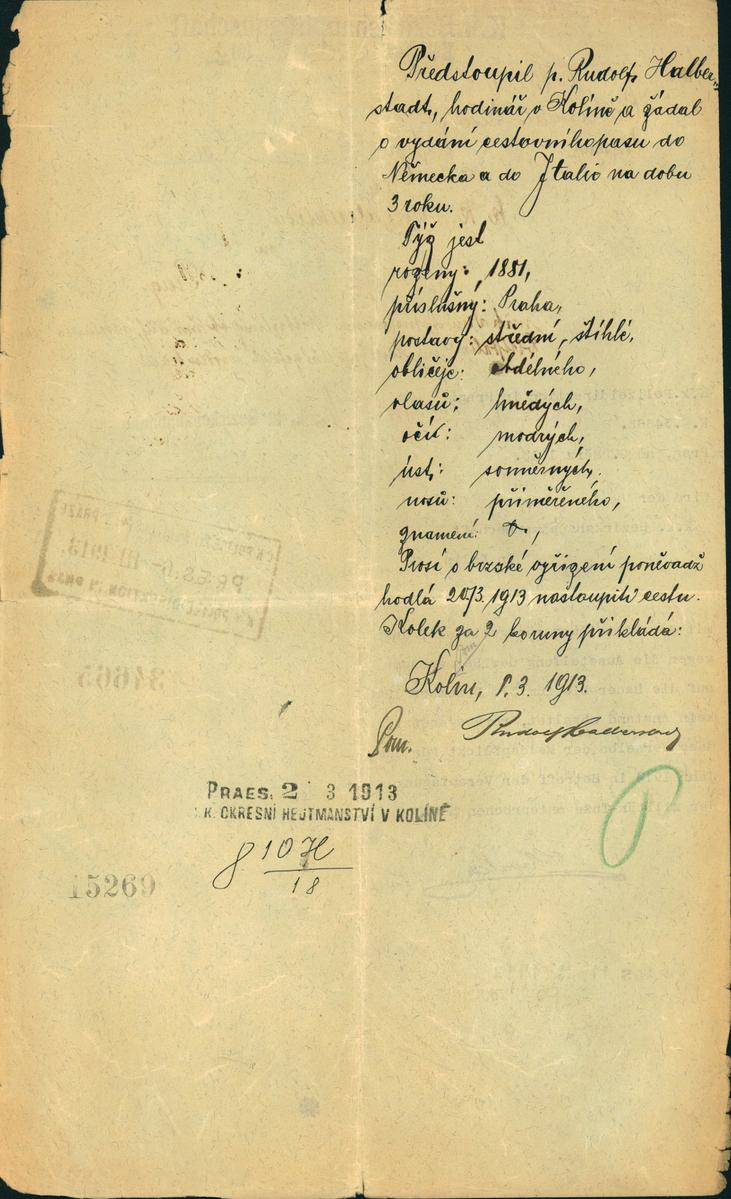 Předstoupil p. Rudolf Halber-
stadt, hodinář v Kolíně a žádal
o vydání cestovního pasu do
Německa a do Italie na dobu
3 roku.
Týž jest
rozený: 1881,
příslušný: Praha,
postavy: střední, štíhlé,
obličeje: obdélného,
vlasů: hnědých,
očí: modrých,
úst: souměrných,
nosu: přiměřeného,
znamení:
Prosí o brzské vyřízení poněvadž
hodlá 20/3. 1913 nastoupiti cestu.
Kolek za 2 koruny přikládá:
Kolín, 1.3. 1913.
Rudolf
PRAES. 2 3 1913
K. OKRESNÍ HEJTMANSTVÍ V KOLÍNĚ
8 10 H
18
15269
34665